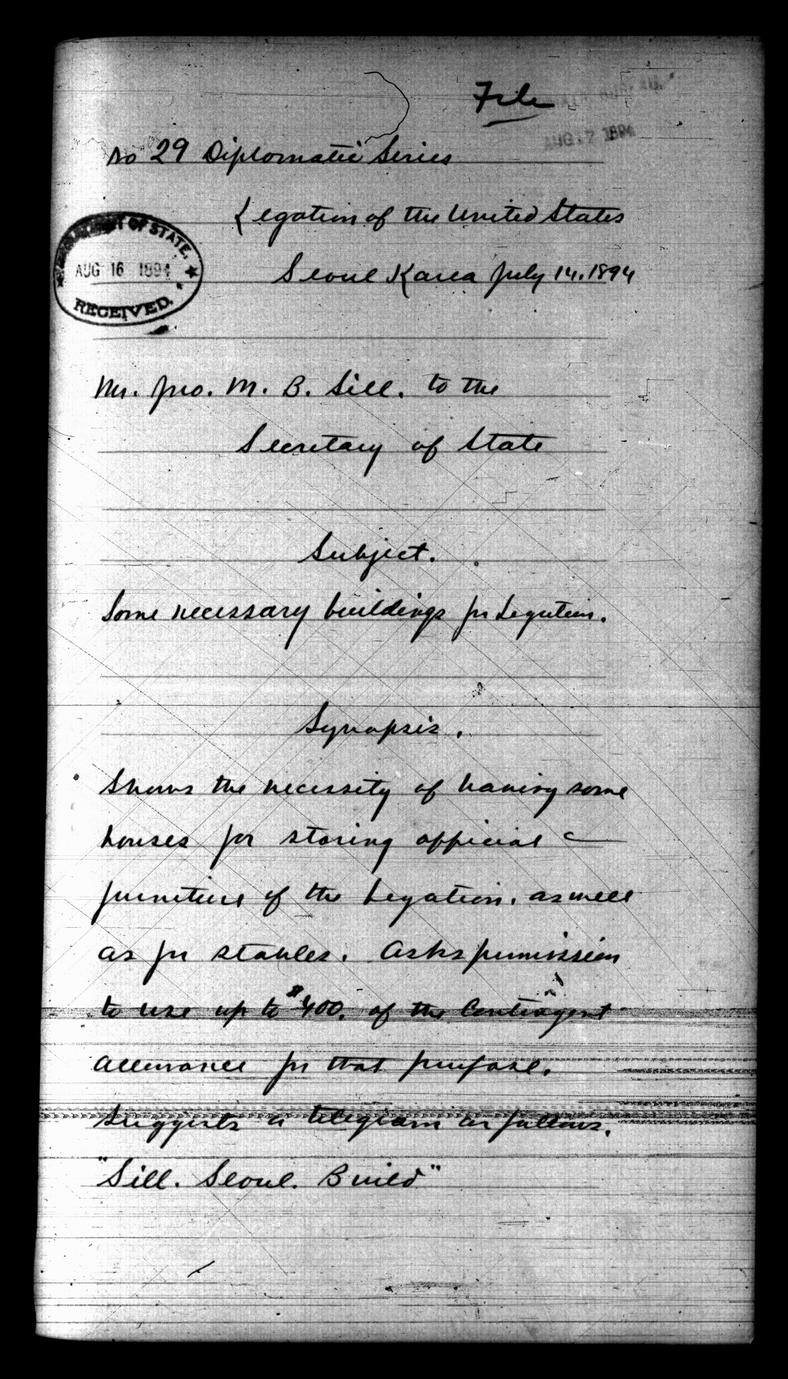 File
AUG 17 1894
No 29 Diplomatic Series
Legation of the United States
DEPARTMENT OF STATE.
AUG 16 1894
RECEIVED.
Seoul Korea July 14. 1894
Mr. Jno. M. B. Sill. to the
Secretary of State
Subject.
Some necessary buildings for Legation.
Synopsis.
Shows the necessity of having some
houses for storing official
furniture of the Legation. as well
as for stables. Asks permission
to use up to $400. of the Contingent
allowance for that purpose.
Suggests a telegram as follows.
"Sill. Seoul. Build"